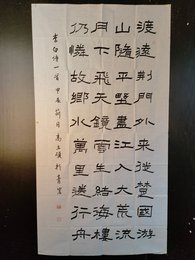 渡遠荆門外来從楚國游
山隨平野盡江入大荒流
月下飛天鏡雲生結海樓
仍憐故鄉水萬里送行舟
李白詩一首甲辰